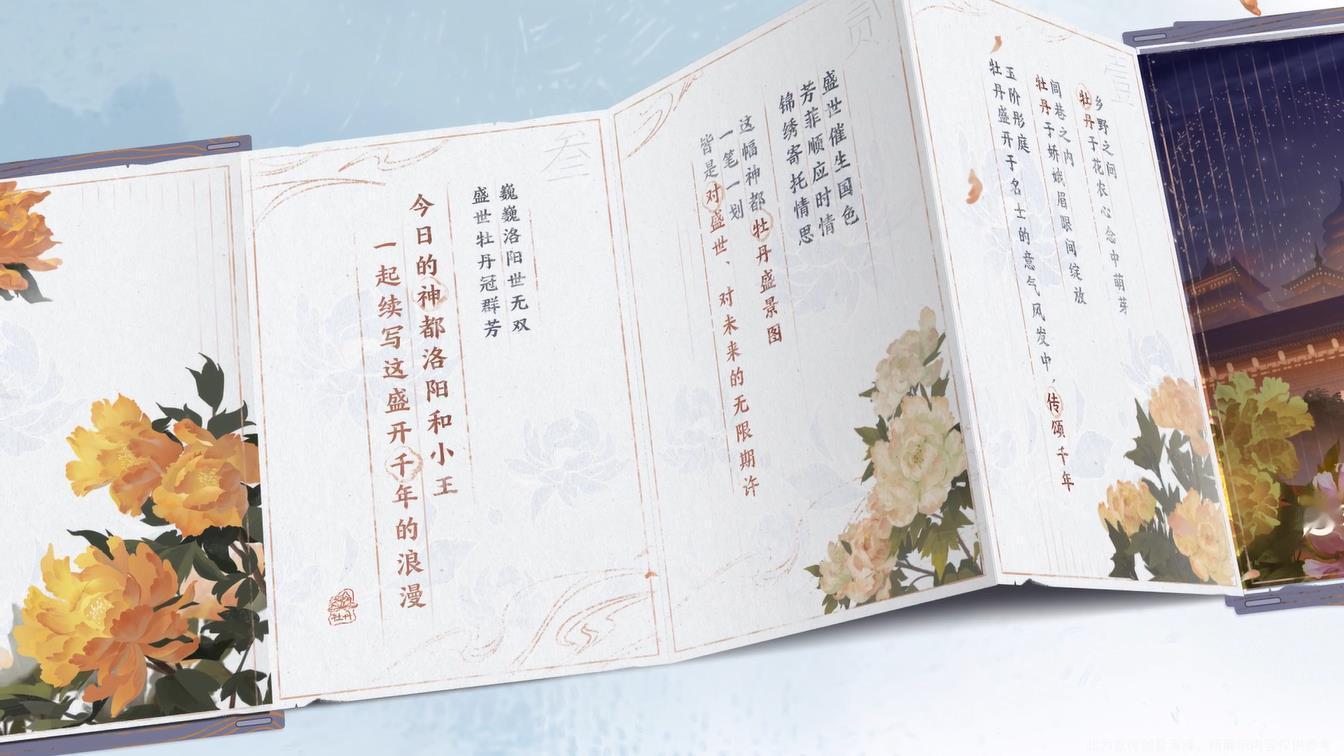 壹
乡野之间
牡丹于花农心念中萌芽
闾巷之内
牡丹于娇娥眉眼间绽放
玉阶彤庭
牡丹盛开于名士的意气风发中，传颂千年
贰
盛世催生国色
芳菲顺应时情
锦绣寄托情思
这幅神都牡丹盛景图
一笔一划
皆是对盛世、对未来的无限期许
叁
巍巍洛阳世无双
盛世牡丹冠群芳
今日的神都洛阳和小王
一起续写这盛开千年的浪漫
牡丹